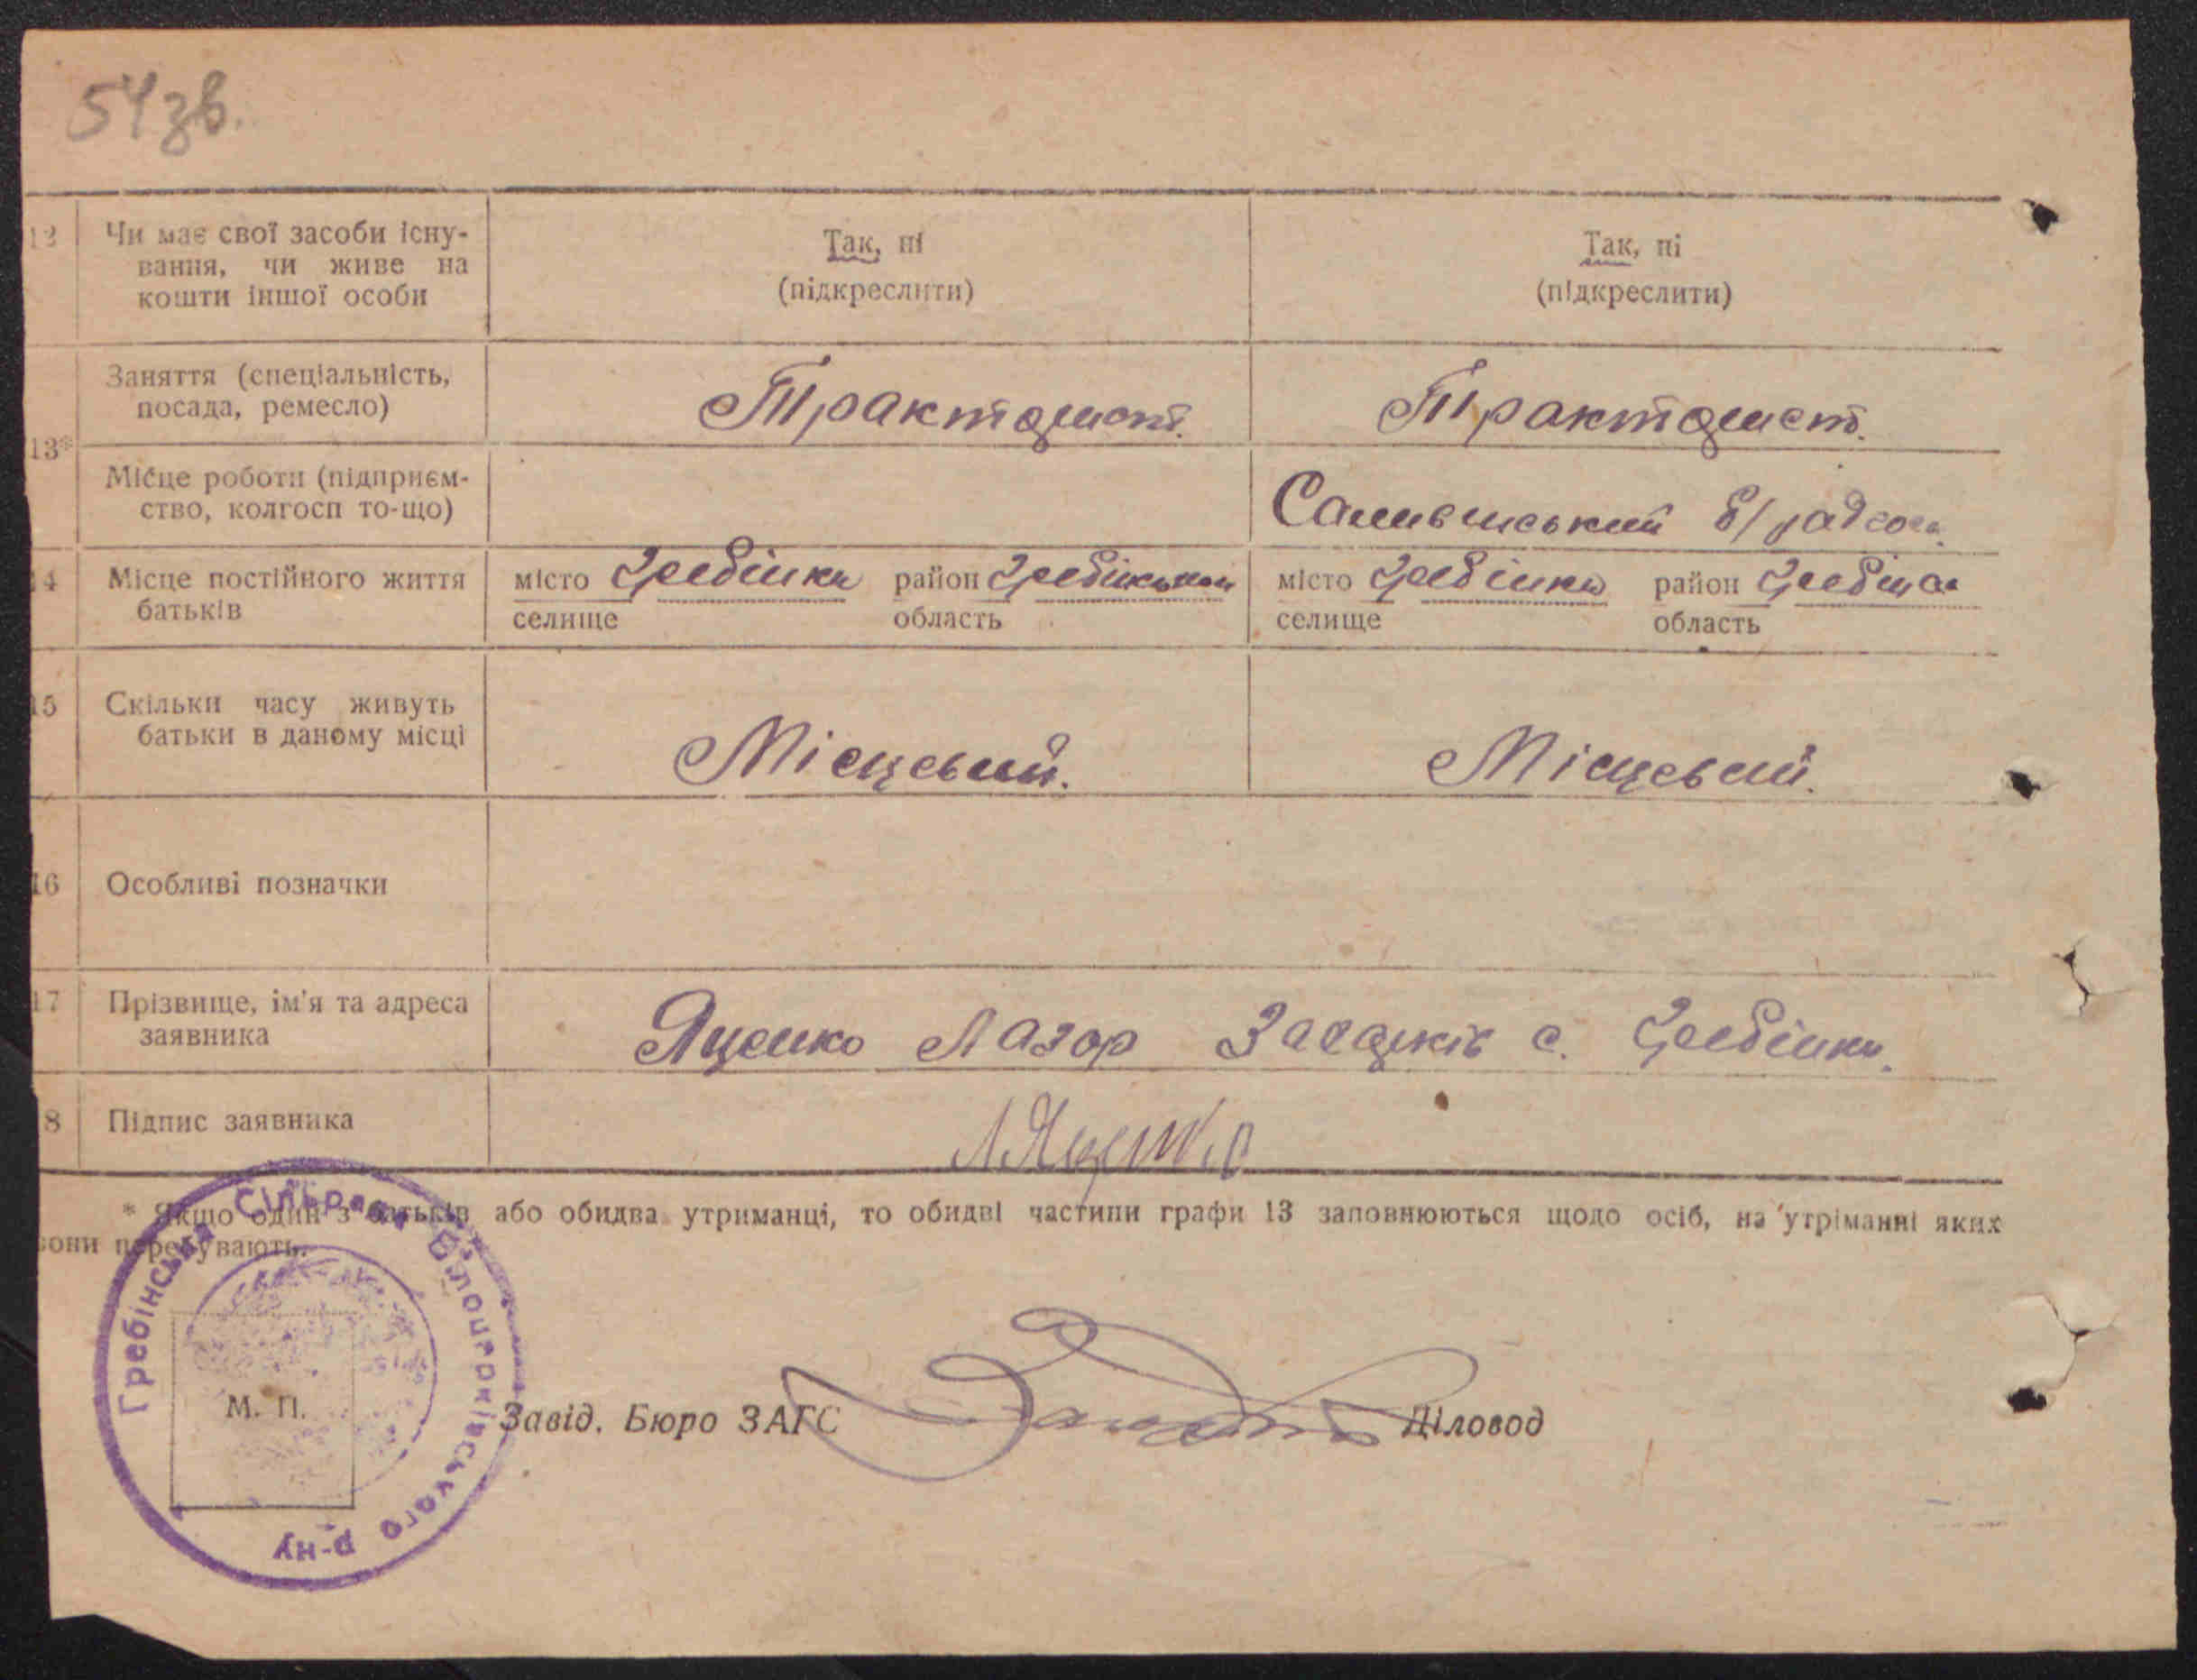 54 зв.
12 Чи має свої засоби існу-
вання, чи живе на
кошти іншої особи
Так, ні
(підкреслити)
Так, ні
(підкреслити)
13*
Заняття (спеціальність,
посада, ремесло)
Тракторист.
Тракторист.
Місце роботи (підприєм-
ство, колгосп то-що)
б/радгосп
14 Місце постійного життя
батьків
місто Гребінки район Гребінський
селище область
місто Гребінки район
селище область
15 Скільки часу живуть
батьки в даному місці
Місцевий.
Місцевий.
16 Особливі позначки
17 Прізвище, ім'я та адреса
заявника
Яценко Лазор с. Гребінки.
8 Підпис заявника
Л Яценко
* Якщо один з батьків або обидва утриманці, то обидві частини графи 13 заповнюються щодо осіб, на утріманні яких
вони перебувають.
Гребінська Сільрада Білоцерківського р-ну
М. П.
Завід. Бюро ЗАГС
Діловод